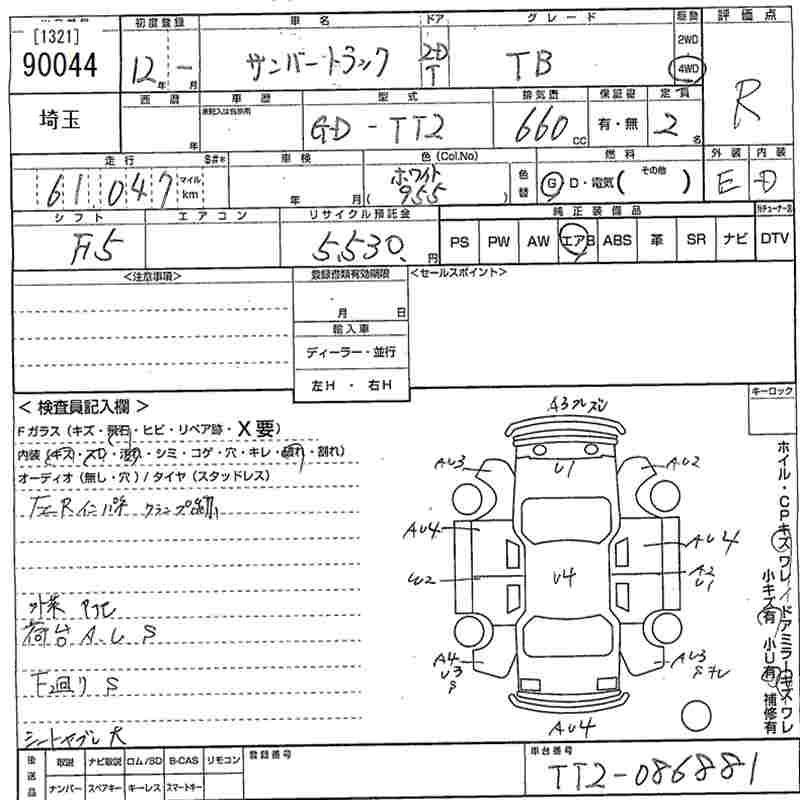 [1321]
90044
初度登録
12年 - 月
車名
サンバートラック
ドア
2-D
T
グレード
TB
駆動
2WD
4WD
評価点
R
埼玉
西暦
年
車歴
型式
GD - TT2
排気量
660 cc
保証書
有・無
定員
2名
走行
61,047
マイル
km
S#*
車検
年 月
色 (Col.No)
ホワイト
( 955 )
色替
燃料
G・D・電気 ( その他 )
外装
E
内装
D
シフト
F5
エアコン
リサイクル預託金
5,530.円
純正装備品
PS PW AW エアB ABS 革 SR ナビ DTV
<注意事項>
登録書類有効期限
月 日
輸入車
ディーラー・並行
左H ・ 右H
<セールスポイント>
キーロック
< 検査員記入欄 >
Fガラス (キズ・飛石・ヒビ・リペア跡・X要)
内装 (キズ・スレ・汚れ・シミ・コゲ・穴・キレ・破れ・割れ)
オーディオ (無し・穴) / タイヤ (スタッドレス)
荷台 A.U S
F2回り S
シートヤブレ 大
A3 ズレ
U1
AU3
AU2
AU4
AU4
U2
U4
A2
U1
A4
U3
S
AU3
AU4
ホイル・CPキズワレ / ドアミラーキズワレ
小キズ有 小U有 補修有
後送品
取説 ナビ取説 ロム/SD B-CAS リモコン
ナンバー スペアキー キーレス スマートキー
登録番号
車台番号
TT2-086881